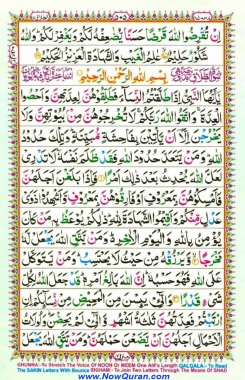 اِنْ تُقْرِضُوا اللّٰهَ قَرْضًا حَسَنًا يُّضٰعِفْهُ لَكُمْ وَيَغْفِرْ لَكُمْ وَاللّٰهُ
شَكُوْرٌ حَلِيْمٌ عٰلِمُ الْغَيْبِ وَالشَّهَادَةِ الْعَزِيْزُ الْحَكِيْمُ
بِسْمِ اللّٰهِ الرَّحْمٰنِ الرَّحِيْمِ
يٰٓاَيُّهَا النَّبِيُّ اِذَا طَلَّقْتُمُ النِّسَآءَ فَطَلِّقُوْهُنَّ لِعِدَّتِهِنَّ وَاَحْصُوا
الْعِدَّةَ وَاتَّقُوا اللّٰهَ رَبَّكُمْ لَا تُخْرِجُوْهُنَّ مِنْۢ بُيُوْتِهِنَّ وَلَا
يَخْرُجْنَ اِلَّآ اَنْ يَّاْتِيْنَ بِفَاحِشَةٍ مُّبَيِّنَةٍ وَتِلْكَ حُدُوْدُ
اللّٰهِ وَمَنْ يَّتَعَدَّ حُدُوْدَ اللّٰهِ فَقَدْ ظَلَمَ نَفْسَهٗ لَا تَدْرِيْ
لَعَلَّ اللّٰهَ يُحْدِثُ بَعْدَ ذٰلِكَ اَمْرًا فَاِذَا بَلَغْنَ اَجَلَهُنَّ
فَاَمْسِكُوْهُنَّ بِمَعْرُوْفٍ اَوْ فَارِقُوْهُنَّ بِمَعْرُوْفٍ وَّاَشْهِدُوْا ذَوَيْ
عَدْلٍ مِّنْكُمْ وَاَقِيْمُوا الشَّهَادَةَ لِلّٰهِ ذٰلِكُمْ يُوْعَظُ بِهٖ مَنْ كَانَ
يُؤْمِنُ بِاللّٰهِ وَالْيَوْمِ الْاٰخِرِ وَمَنْ يَّتَّقِ اللّٰهَ يَجْعَلْ لَّهٗ
مَخْرَجًا وَّيَرْزُقْهُ مِنْ حَيْثُ لَا يَحْتَسِبُ وَمَنْ يَّتَوَكَّلْ
عَلَى اللّٰهِ فَهُوَ حَسْبُهٗ اِنَّ اللّٰهَ بَالِغُ اَمْرِهٖ قَدْ جَعَلَ اللّٰهُ لِكُلِّ
شَيْءٍ قَدْرًا وَالّٰٓـِٔيْ يَىِٕسْنَ مِنَ الْمَحِيْضِ مِنْ نِّسَآىِٕكُمْ اِنِ
ارْتَبْتُمْ فَعِدَّتُهُنَّ ثَلٰثَةُ اَشْهُرٍ وَّالّٰٓـِٔيْ لَمْ يَحِضْنَ وَاُولَاتُ الْاَحْمَالِ
اَجَلُهُنَّ اَنْ يَّضَعْنَ حَمْلَهُنَّ وَمَنْ يَّتَّقِ اللّٰهَ يَجْعَلْ
GHUNNA:-To Stretch The Voice Of NOON Or MEEM One Adil's Length QALQALA:- To Read
The SAKIN Letters With Bounce IDGHAM:- To Join Two Letters Through The Means Of SHAD
www.NowQuran.com